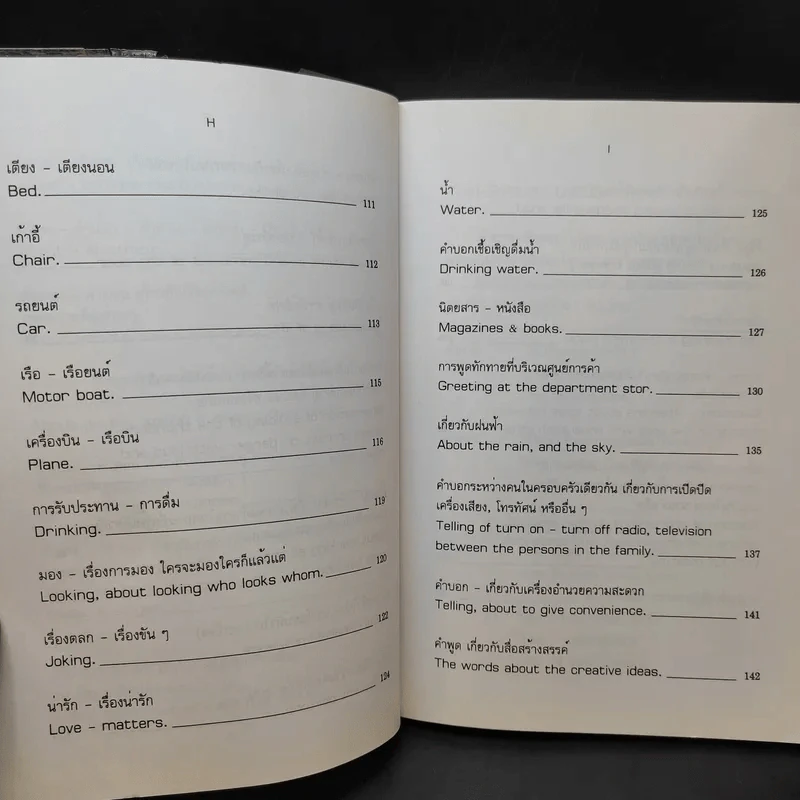 H
เตียง – เตียงนอน
Bed. 111
เก้าอี้
Chair. 112
รถยนต์
Car. 113
เรือ – เรือยนต์
Motor boat. 115
เครื่องบิน – เรือบิน
Plane. 116
การรับประทาน – การดื่ม
Drinking. 119
มอง – เรื่องการมอง ใครจะมองใครก็แล้วแต่
Looking, about looking who looks whom. 120
เรื่องตลก – เรื่องขัน ๆ
Joking. 122
น่ารัก – เรื่องน่ารัก
Love – matters. 124
I
น้ำ
Water. 125
คำบอกเชื้อเชิญดื่มน้ำ
Drinking water. 126
นิตยสาร – หนังสือ
Magazines & books. 127
การพูดทักทายที่บริเวณศูนย์การค้า
Greeting at the department stor. 130
เกี่ยวกับฝนฟ้า
About the rain, and the sky. 135
คำบอกระหว่างคนในครอบครัวเดียวกัน เกี่ยวกับการเปิดปิด
เครื่องเสียง, โทรทัศน์ หรืออื่น ๆ
Telling of turn on – turn off radio, television
between the persons in the family. 137
คำบอก – เกี่ยวกับเครื่องอำนวยความสะดวก
Telling, about to give convenience. 141
คำพูด เกี่ยวกับสื่อสร้างสรรค์
The words about the creative ideas. 142